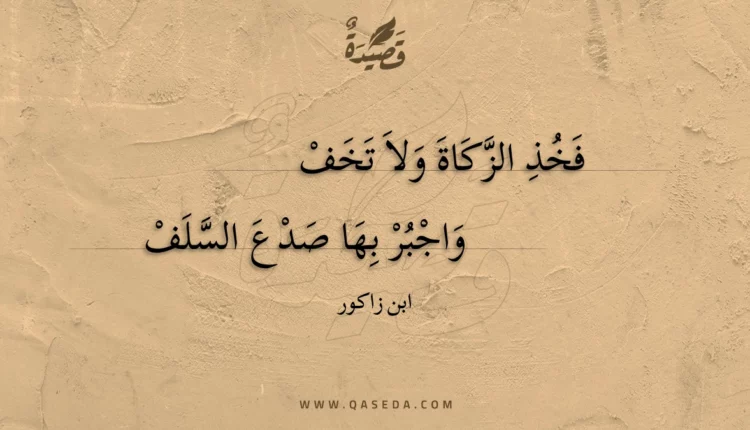 قَصِيدَةٌ
فَخُذِ الزَّكَاةَ وَلاَ تَخَفْ
وَاجْبُرْ بِهَا صَدْعَ السَّلَفْ
ابن زاكور
WWW.QASEDA.COM